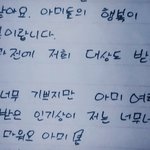 많아요. 아미들의 행복이
입니다.
과전에 저희 대상도 받
너무 기쁘지만 아미 여러
받은 인기상이 저는 너무너
마워요 아미